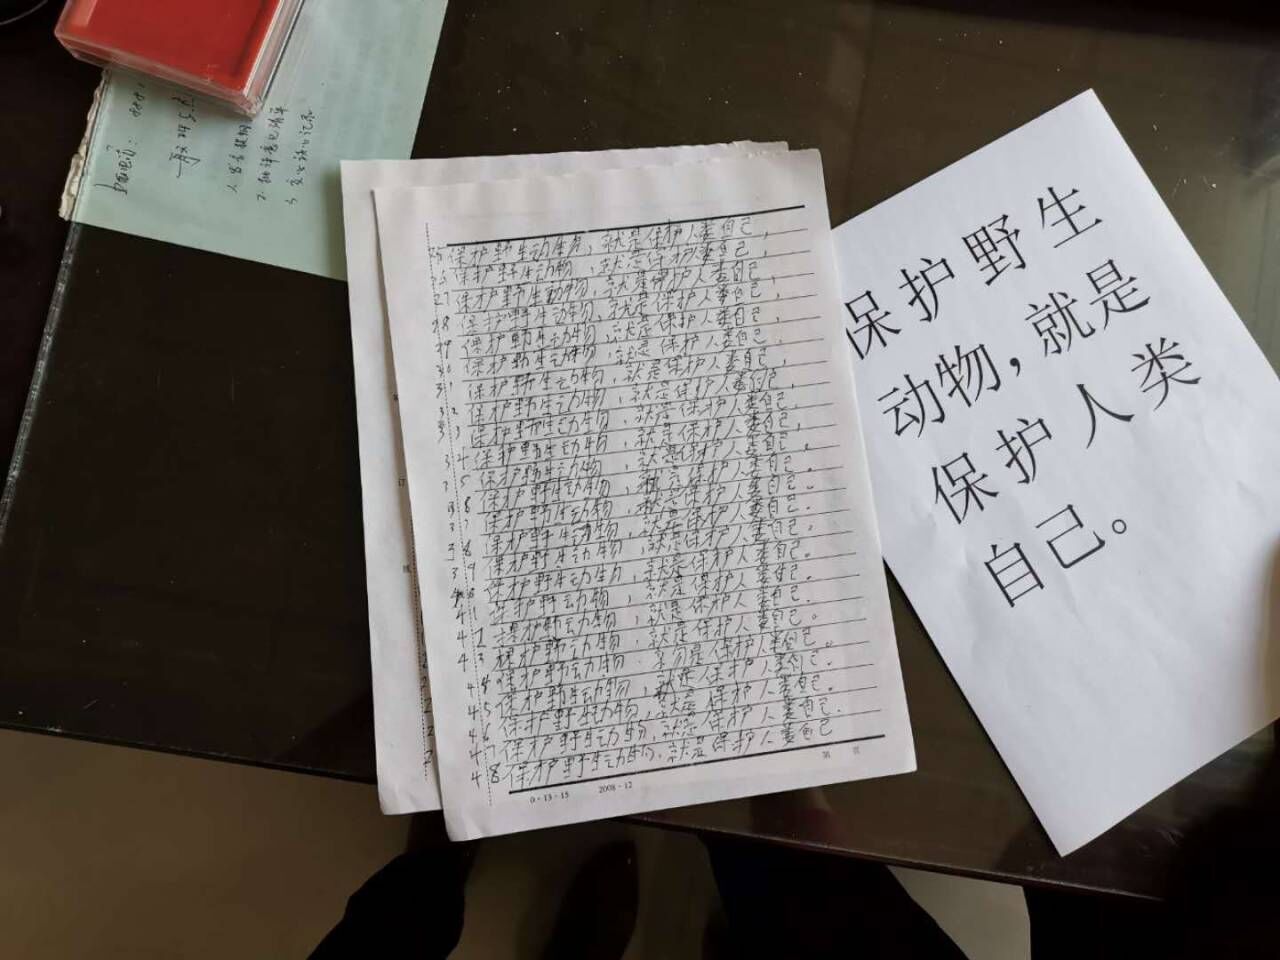 保护野生动生老，就是保护人类自己，
26 保护野生动物，就是保护人类自己，
27 保护野生動物，就是保护人类自己，
28 保护野生动物，就是保护人类自己，
29 保护野生动物，就是保护人类自己，
30 保护野生动物，就是保护人类自己，
31 保护野生动物，就是保护人类自己，
32 保护野生动物，就是保护人类自己，
33 保护野生动物，就是保护人类自己，
34 保护野生动物，就是保护人类自己。
35 保护野生动物，就是保护人类自己。
保护野生动物，就是保护人类自己。
37 保护野生动物，就是保护人类自己。
38 保护野生动物，就是保护人类自己。
39 保护野生动物，就是保护人类自己。
40 保护野生动物，就是保护人类自己。
41 护野动物，就是保护人类自己。
42 护野动物，就是保护人类自己。
43 保护野动物，就是保护人类自己。
44 保护野动物，是保护人类自己。
45 保护野生动物，就是保护人类自己。
46 保护野生动物，就是保护人类自己。
47 保护野生动物，就是保护人类自己
48 保护野生动物，就是保护人类自己
0-13-15 2008·12 第 页
订
线
保护野生
动物，就是
保护人类
自己。